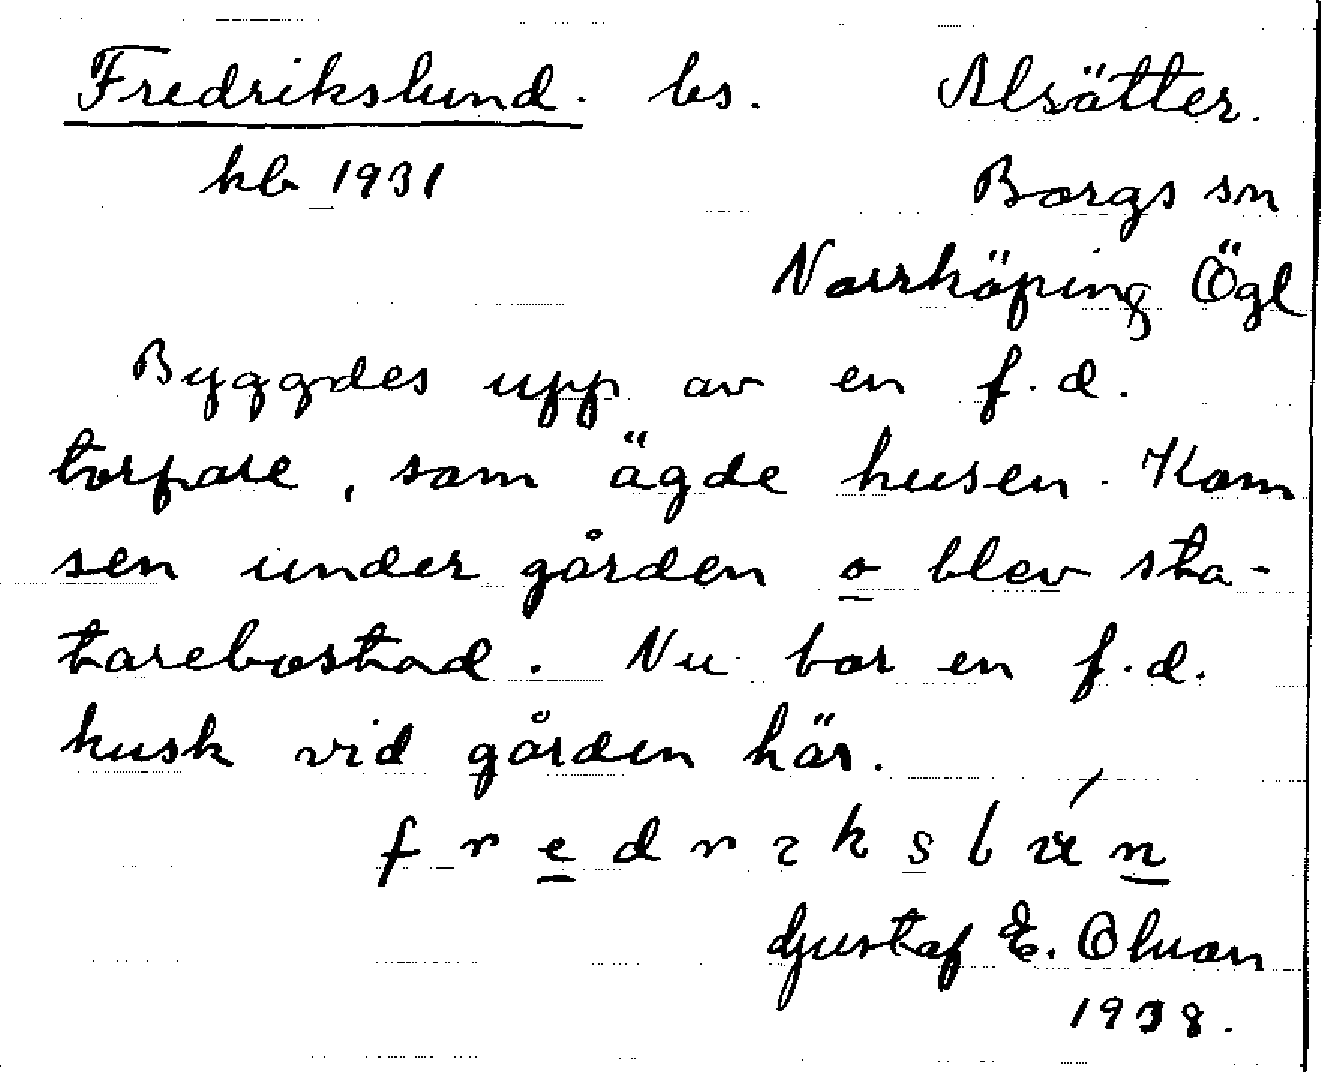 Fredrikslund. ls. Alsätter.
kb 1931 Borgs sn
Norrköping Ögl
Byggdes upp av en f.d.
torpare, som ägde husen. Kom
sen under gården o blev sta-
tarebostad. Nu bor en f.d.
kusk vid gården här.
Gustaf E. Olson
1938.